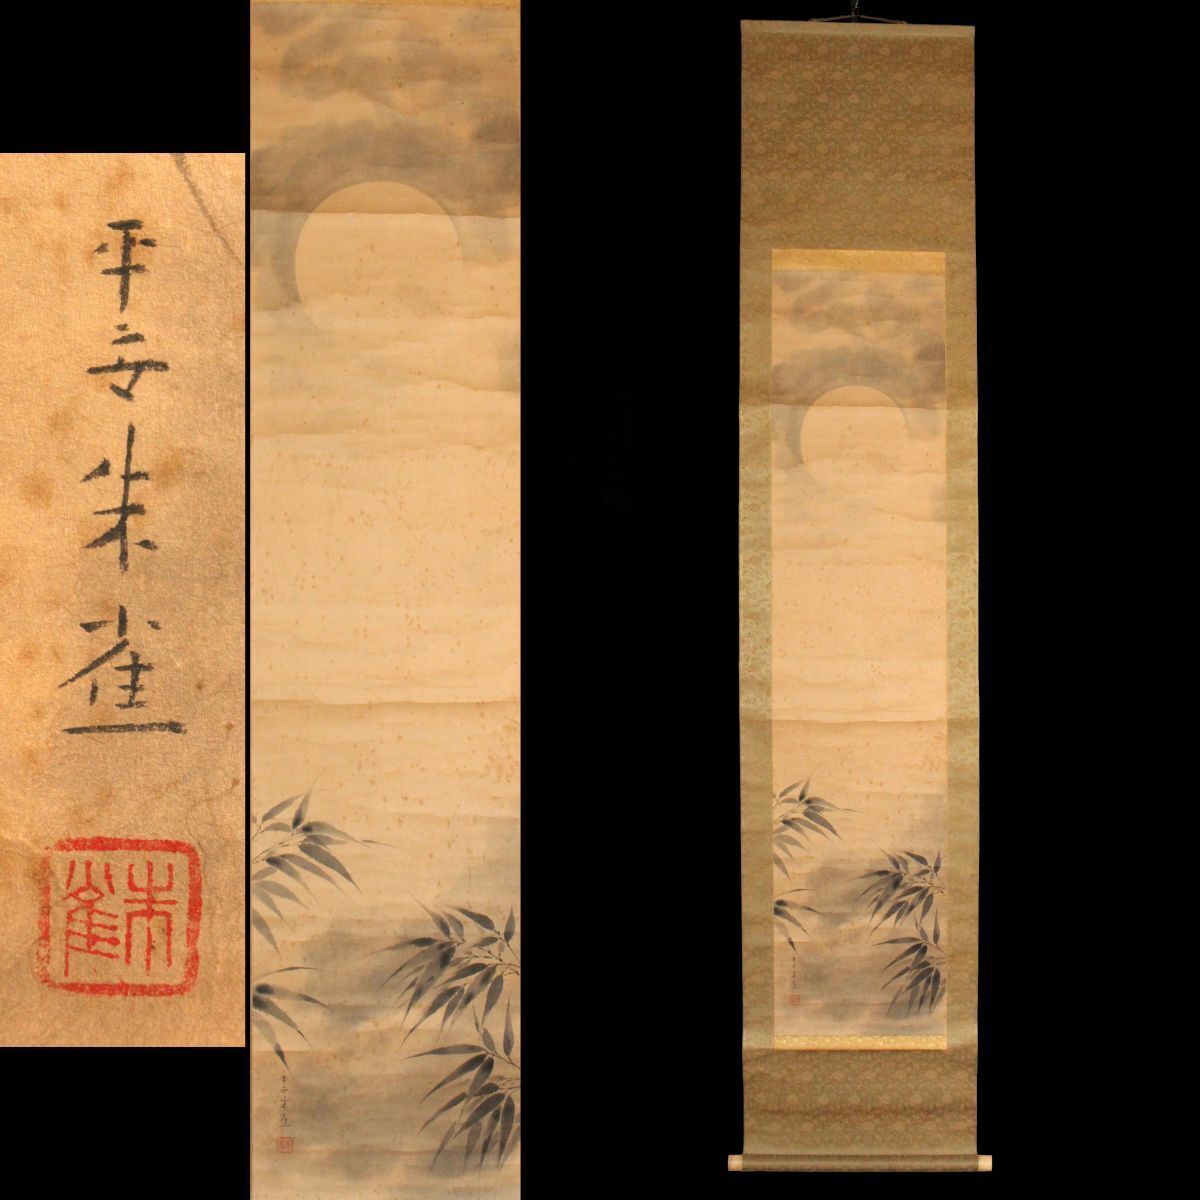 平安朱雀
朱雀